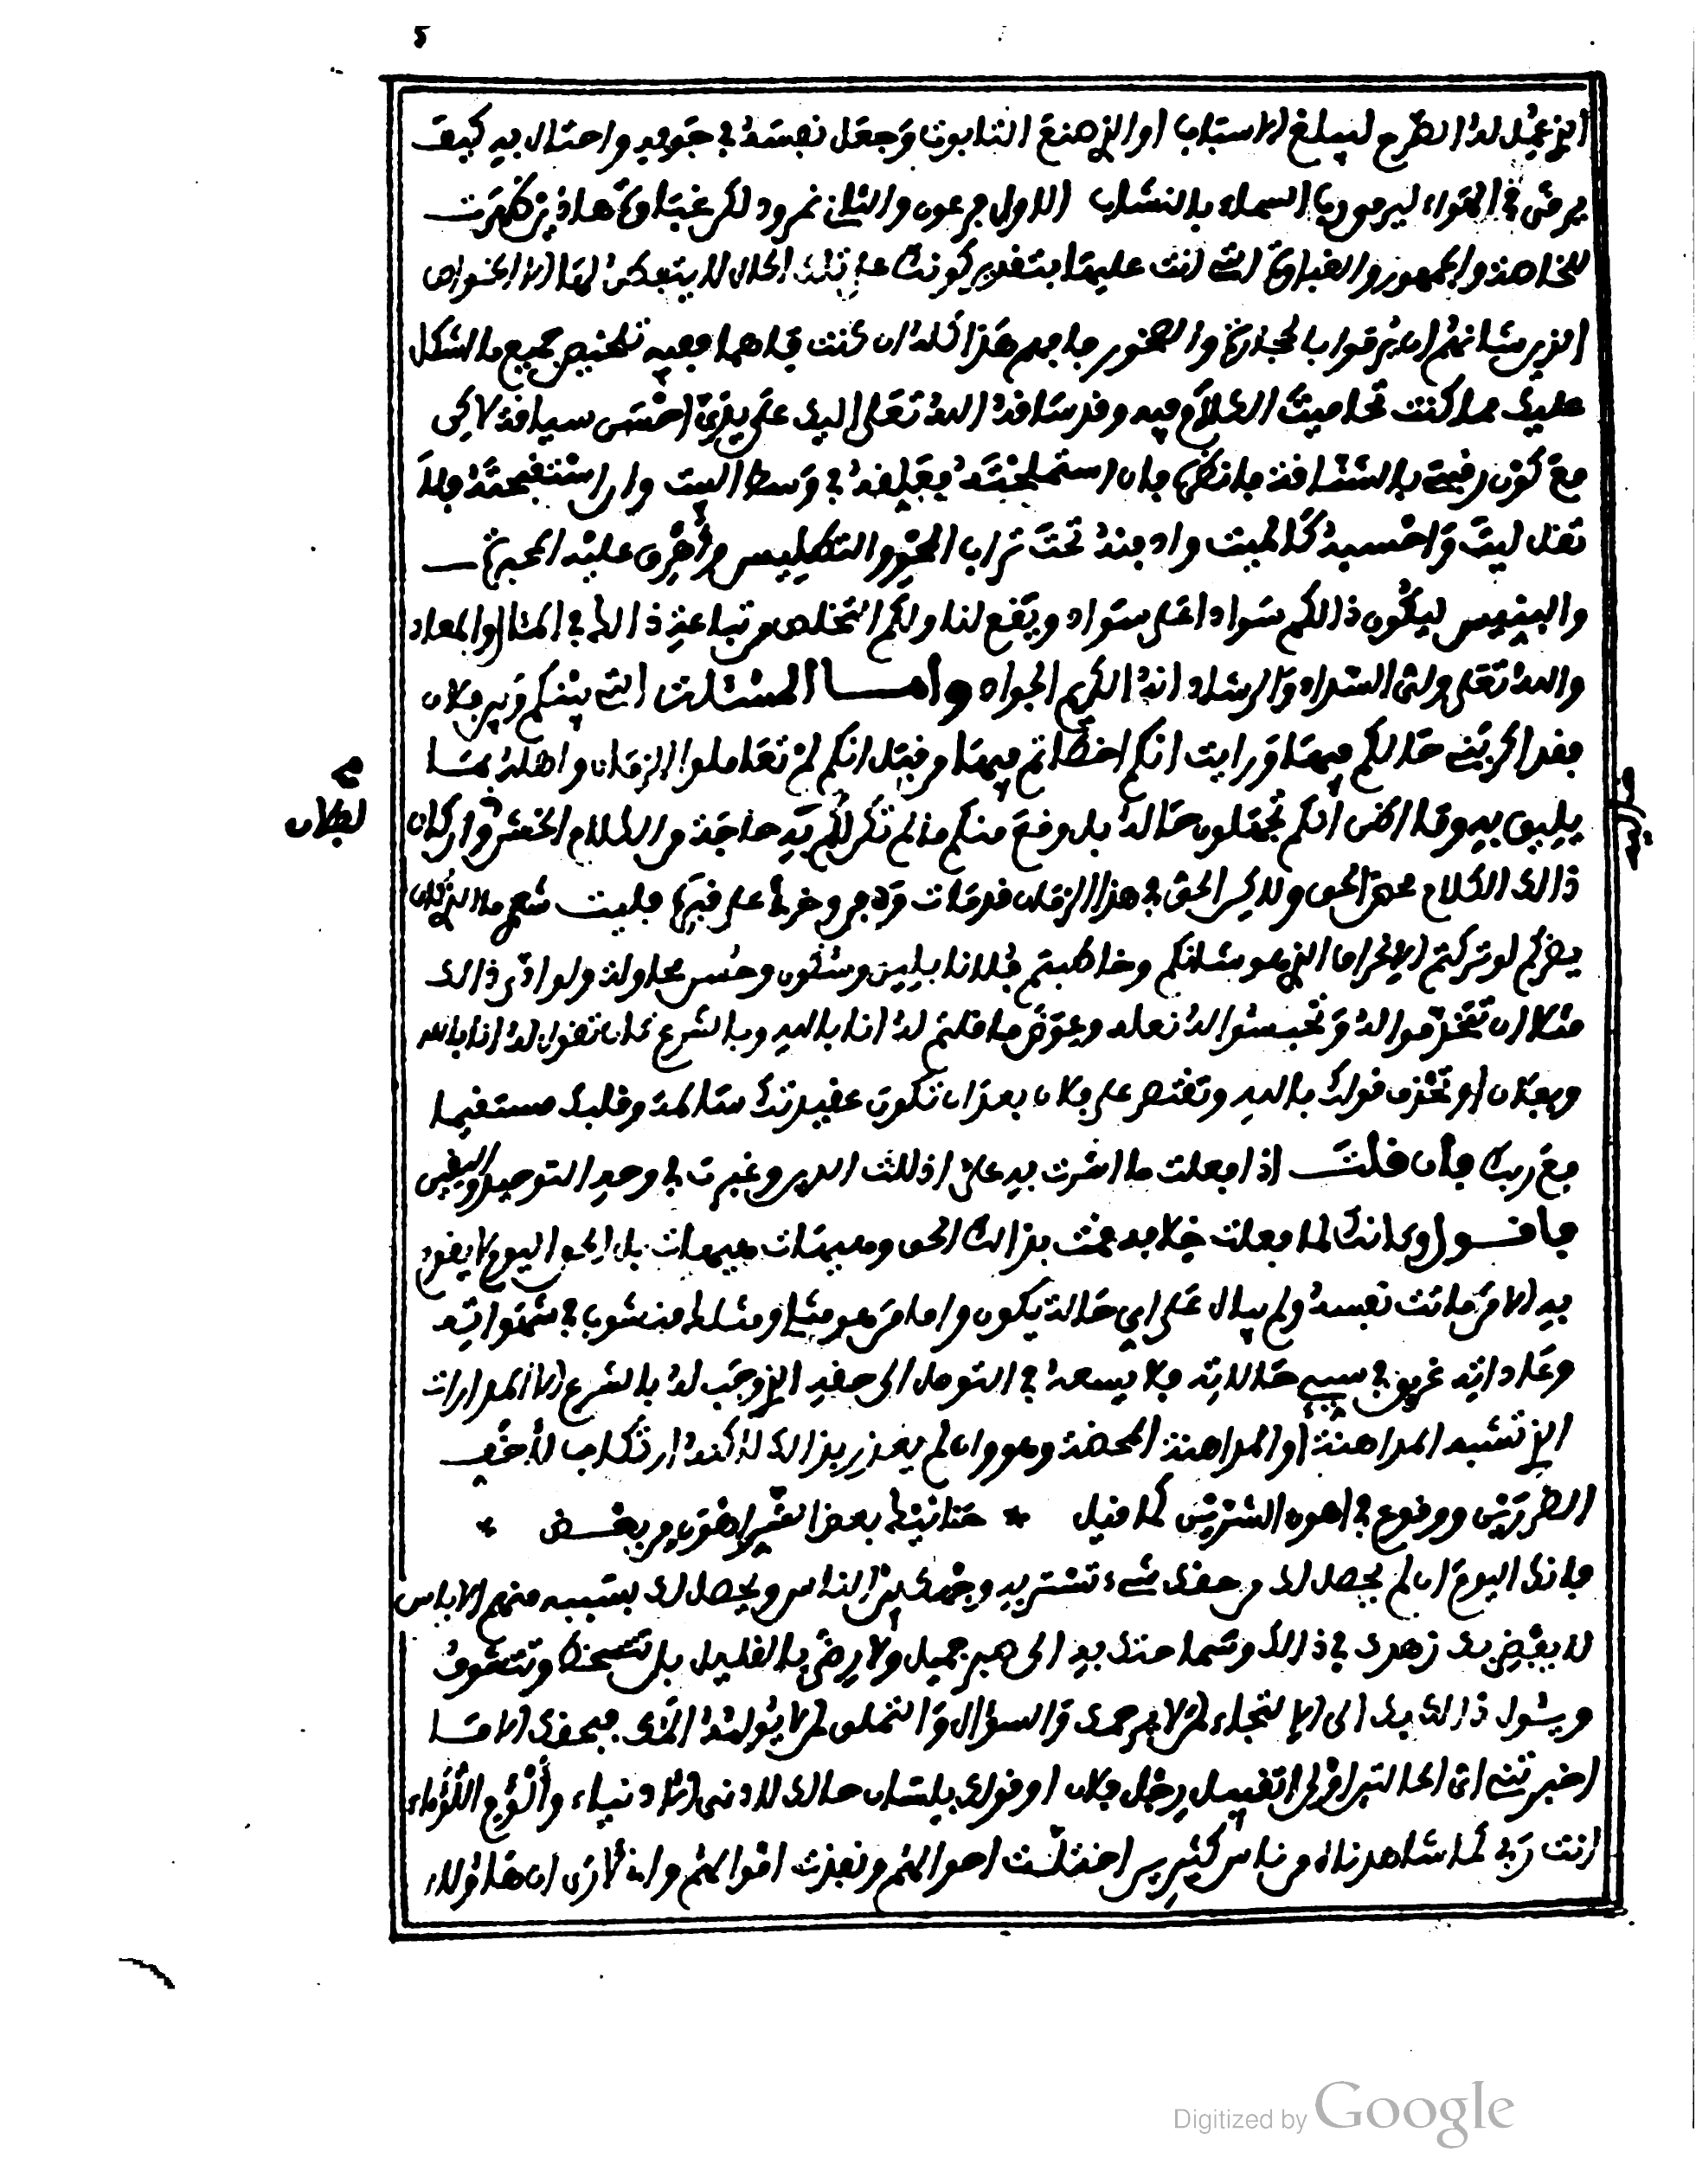 الذي عمل له الصرح ليبلغ الاسباب او الذي صنع التابوت وجعل نفسه في جوفه واحتال به كيف
يرقى في الهواء ليرمي السماء بالنشاب الاول فرعون والثاني نمرود لكن غباوة هاذين ظهرت
للخاصة والجمهور والغباوة التي انت عليها بتقدير كونك على تلك الحال لا يتفطن لها الا الخواص
الذين شانهم ان يرموا بالحجارة والصخور فافهم هذا كله ان كنت فاهما ففيه تلخيص جميع ما اشكل
عليك مما كنت تحاميت الكلام فيه وقد ساقه الله تعالى اليك على يدي احسن سياقة لاكن
مع كونه رقيق بالشفافة فانظره فان استملحته فعلقه في وسط البيت وان استقبحته فلا
تقل ليت واحسبه كالميت وادفنه تحت تراب المحو والتطليس واهرق عليه المحبرة
والبفيس ليكون ذالكم سواد اعلى سواد ويقع لنا ولكم التخلص من تباعة ذالك في المئال والمعاد
والله تعلى ولي السداد والرشاد انه الكريم الجواد واما المسئلة التي بينكم وبين فلان
فقد اخبرتني حالكم فيها ورايت انكم اخطاتم فيها من قبل انكم لم تعاملوا الزمان واهله بما
يليق به وما اظن انكم تجهلون حاله بل وقع منكم ما لم تكن لكم به حاجة من الكلام الخشن وان كان
ذالك الكلام محض الحق ولاكن الحق في هذا الزمان قد مات ودفن وخري على قبره فليت شعري ما الذي كان
يضركم لو تركتم الانحراف الذي هو شانكم وخاطبتم فلانا بلين وسكون وحسن محاولة ولو ادى ذالك
مثلا ان تتخدموا له وتحبسوا له نعله وعوض ما قلتم له انا بالله وبالشرع كان تقول له انا بالله
وبفلان او تحذف قولك بالله وتقتصر على فلان بعد ان تكون عقيدتك سالمة وقلبك مستقيما
مع ربك فان قلت اذا فعلت ما اشرت به علي اذللت الدين وغبرت في وجه التوحيد واليقين
فاقول وكانك لما فعلت خلافه قمت بذالك الحق وهيهات هيهات بل الحق اليوم لا يقوم
به الا من ماتت نفسه ولم يبال على اي حالة يكون واما من هو مثلي ومثلك منشوب في شهواته
وعاداته غريق في سيئ حالاته فلا يسعه في التوصل الى حقه الذي وجب له بالشرع الا المدارات
التي تشبه المداهنة او المداهنة المحضة وهو وان لم يعذر بذالك لاكنه ارتكاب لاخف
الضررين ووقوع في اهون الشرين كما قيل * حنانيك بعض الشر اهون من بعض *
فانك اليوم ان لم يحصل لك من حقك شيء تستر به وجهك بين الناس ويحصل لك بسببه منهم الاياس
لا يفضي بك زهدك في ذالك وسماحتك به الى صبر جميل ولا رضى بالقليل بل تتسخط وتتشوف
ويئول ذالك بك الى الالتجاء لمن لا يرحمك والسؤال والتملق لمن لا يولمه المك فبحقك الا ما
اخبرتني اي الحالتين اولى اتقبيل رجل فلان او قولك بلسان حالك لادنى الادنياء والؤم اللؤماء
انت ربي كما شاهدناه من ناس كثيرين اختلت احوالهم ونفذت اقوالهم واني لارى ان هاؤلاء
لفلان